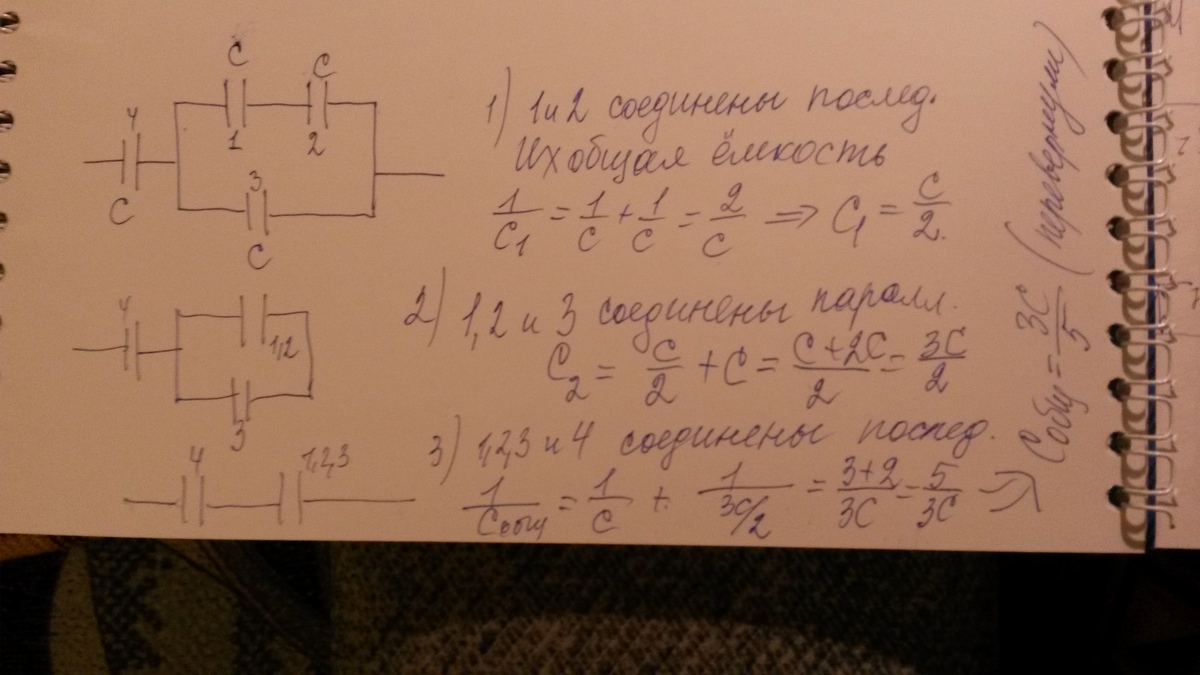 C C
4
1 2
3
C
C
1) 1 и 2 соединены послед.
Их общая ёмкость
1/C1 = 1/C + 1/C = 2/C => C1 = C/2.
4
1,2
3
2) 1,2 и 3 соединены паралл.
C2 = C/2 + C = (C+2C)/2 = 3C/2
4 1,2,3
3) 1,2,3 и 4 соединены послед.
1/Cобщ = 1/C + 1/(3C/2) = (3+2)/3C = 5/3C =>
Cобщ = 3C/5 (перевернули)